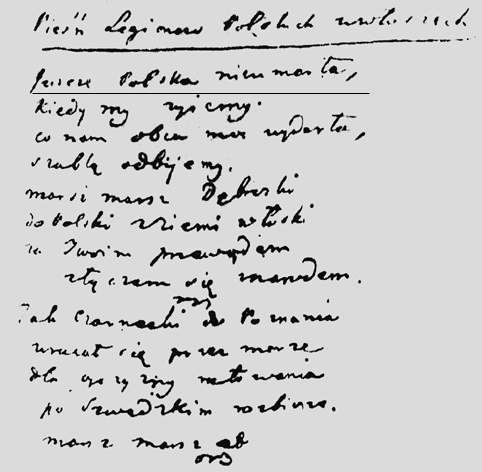 Pieśń Legionów Polskich we Włoszech
Jeszcze Polska nie umarła,
kiedy my żyjemy.
co nam obca moc wydarła,
szablą odbijemy.
marsz marsz Dąbroski
do Polski z ziemi włoski
za Twoim przewodem
złączem się z narodem.
Jak Czarnecki do Poznania
wracał się przez morze
dla ojczyzny ratowania
po szwedzkim rozbiorze.
marsz marsz